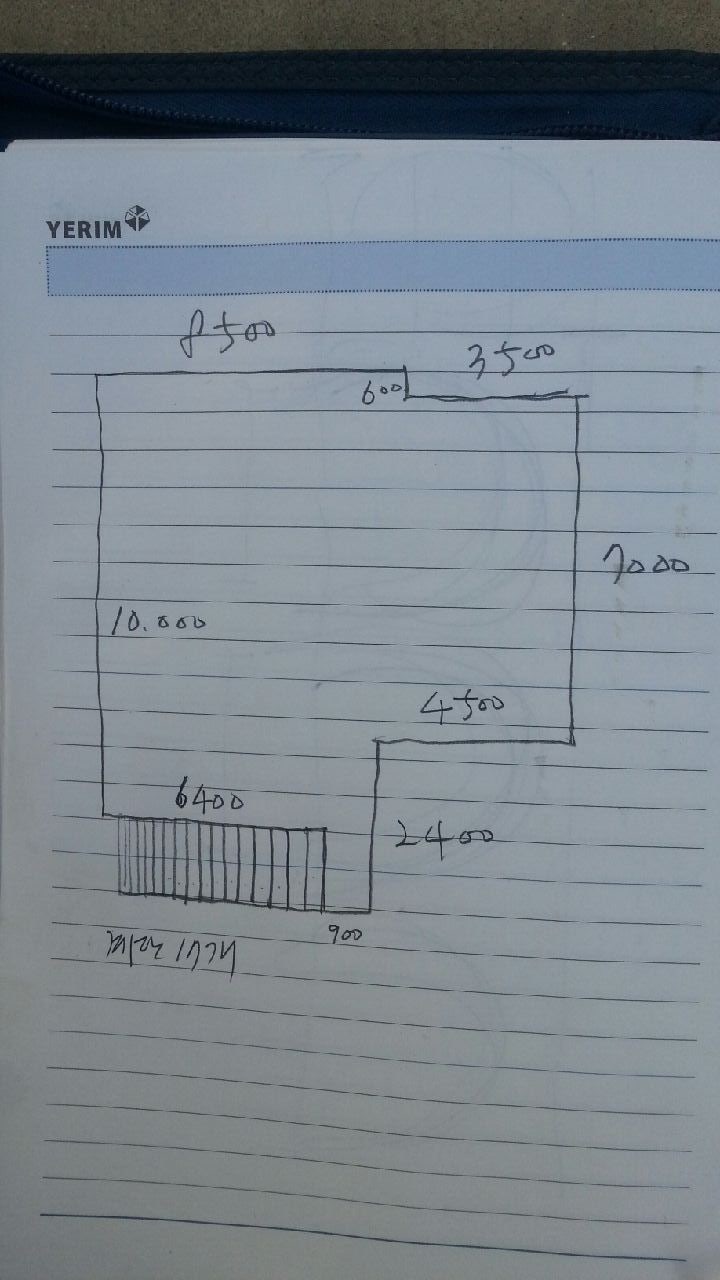 YERIM
8500
3500
600
7000
10.000
4500
6400
2400
900